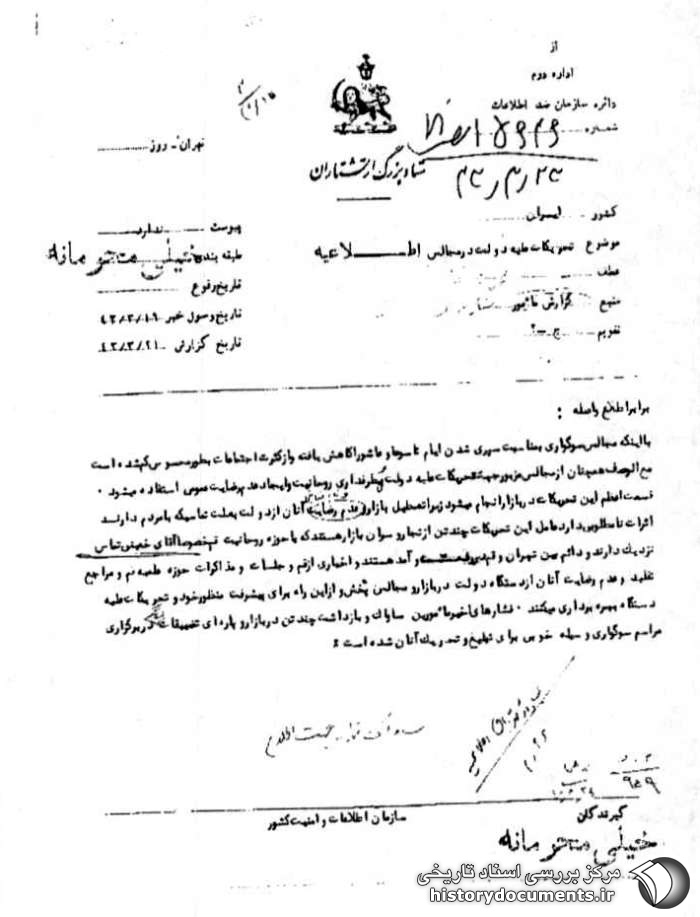 از
اداره دوم
دائره سازمان ضد اطلاعات
شماره
۴۳/۳/۲۳
ستاد بزرگ ارتشتاران
تهران - روز
کشور ایران
موضوع تحریکات علیه دولت در مجالس
اطلاعیه
عطف
منبع گزارش مامور
تقویم ج - ۲
پیوست ندارد
طبقه بندی خیلی محرمانه
تاریخ وقوع
تاریخ وصول خبر ۴۳/۳/۱۹
تاریخ گزارش ۴۳/۳/۲۱
برابر اطلاع واصله :
با اینکه مجالس سوگواری بمناسبت سپری شدن ایام تاسوعا و عاشورا کاهش یافته و از کثرت اجتماعات بطور محسوس کم شده است
مع الوصف همچنان از مجالس مزبور جهت تحریکات علیه دولت و طرفداری روحانیت و ایجاد عدم رضایت عمومی استفاده میشود ۰
قسمت اعظم این تحریکات در بازار انجام میشود زیرا تعطیل بازار و عدم رضایت آنان از دولت بعلت تماسیکه با مردم دارند
اثرات نامطلوبی دارد عامل این تحریکات چند تن از تجار و سران بازار هستند که با حوزه روحانیت قم خصوصا آقای خمینی تماس
نزدیک دارند و دائم بین تهران و قم در رفت و آمد هستند و اخباری از قم و جلسات و مذاکرات حوزه علمیه قم و مراجع
تقلید و عدم رضایت آنان از دستگاه دولت در بازار و مجالس پخش و از این راه برای پیشرفت منظور خود و تحریکات علیه
دستگاه بهره برداری میکنند ۰ فشارهای اخیر مامورین ساواک و بازداشت چند تن در بازار و پاره ای تضییقات در برگزاری
مراسم سوگواری وسیله خوبی برای تبلیغ و تحریک آنان شده است
جهت اطلاع
گیرندگان
سازمان اطلاعات و امنیت کشور
خیلی محرمانه
مرکز بررسی اسناد تاریخی
historydocuments.ir